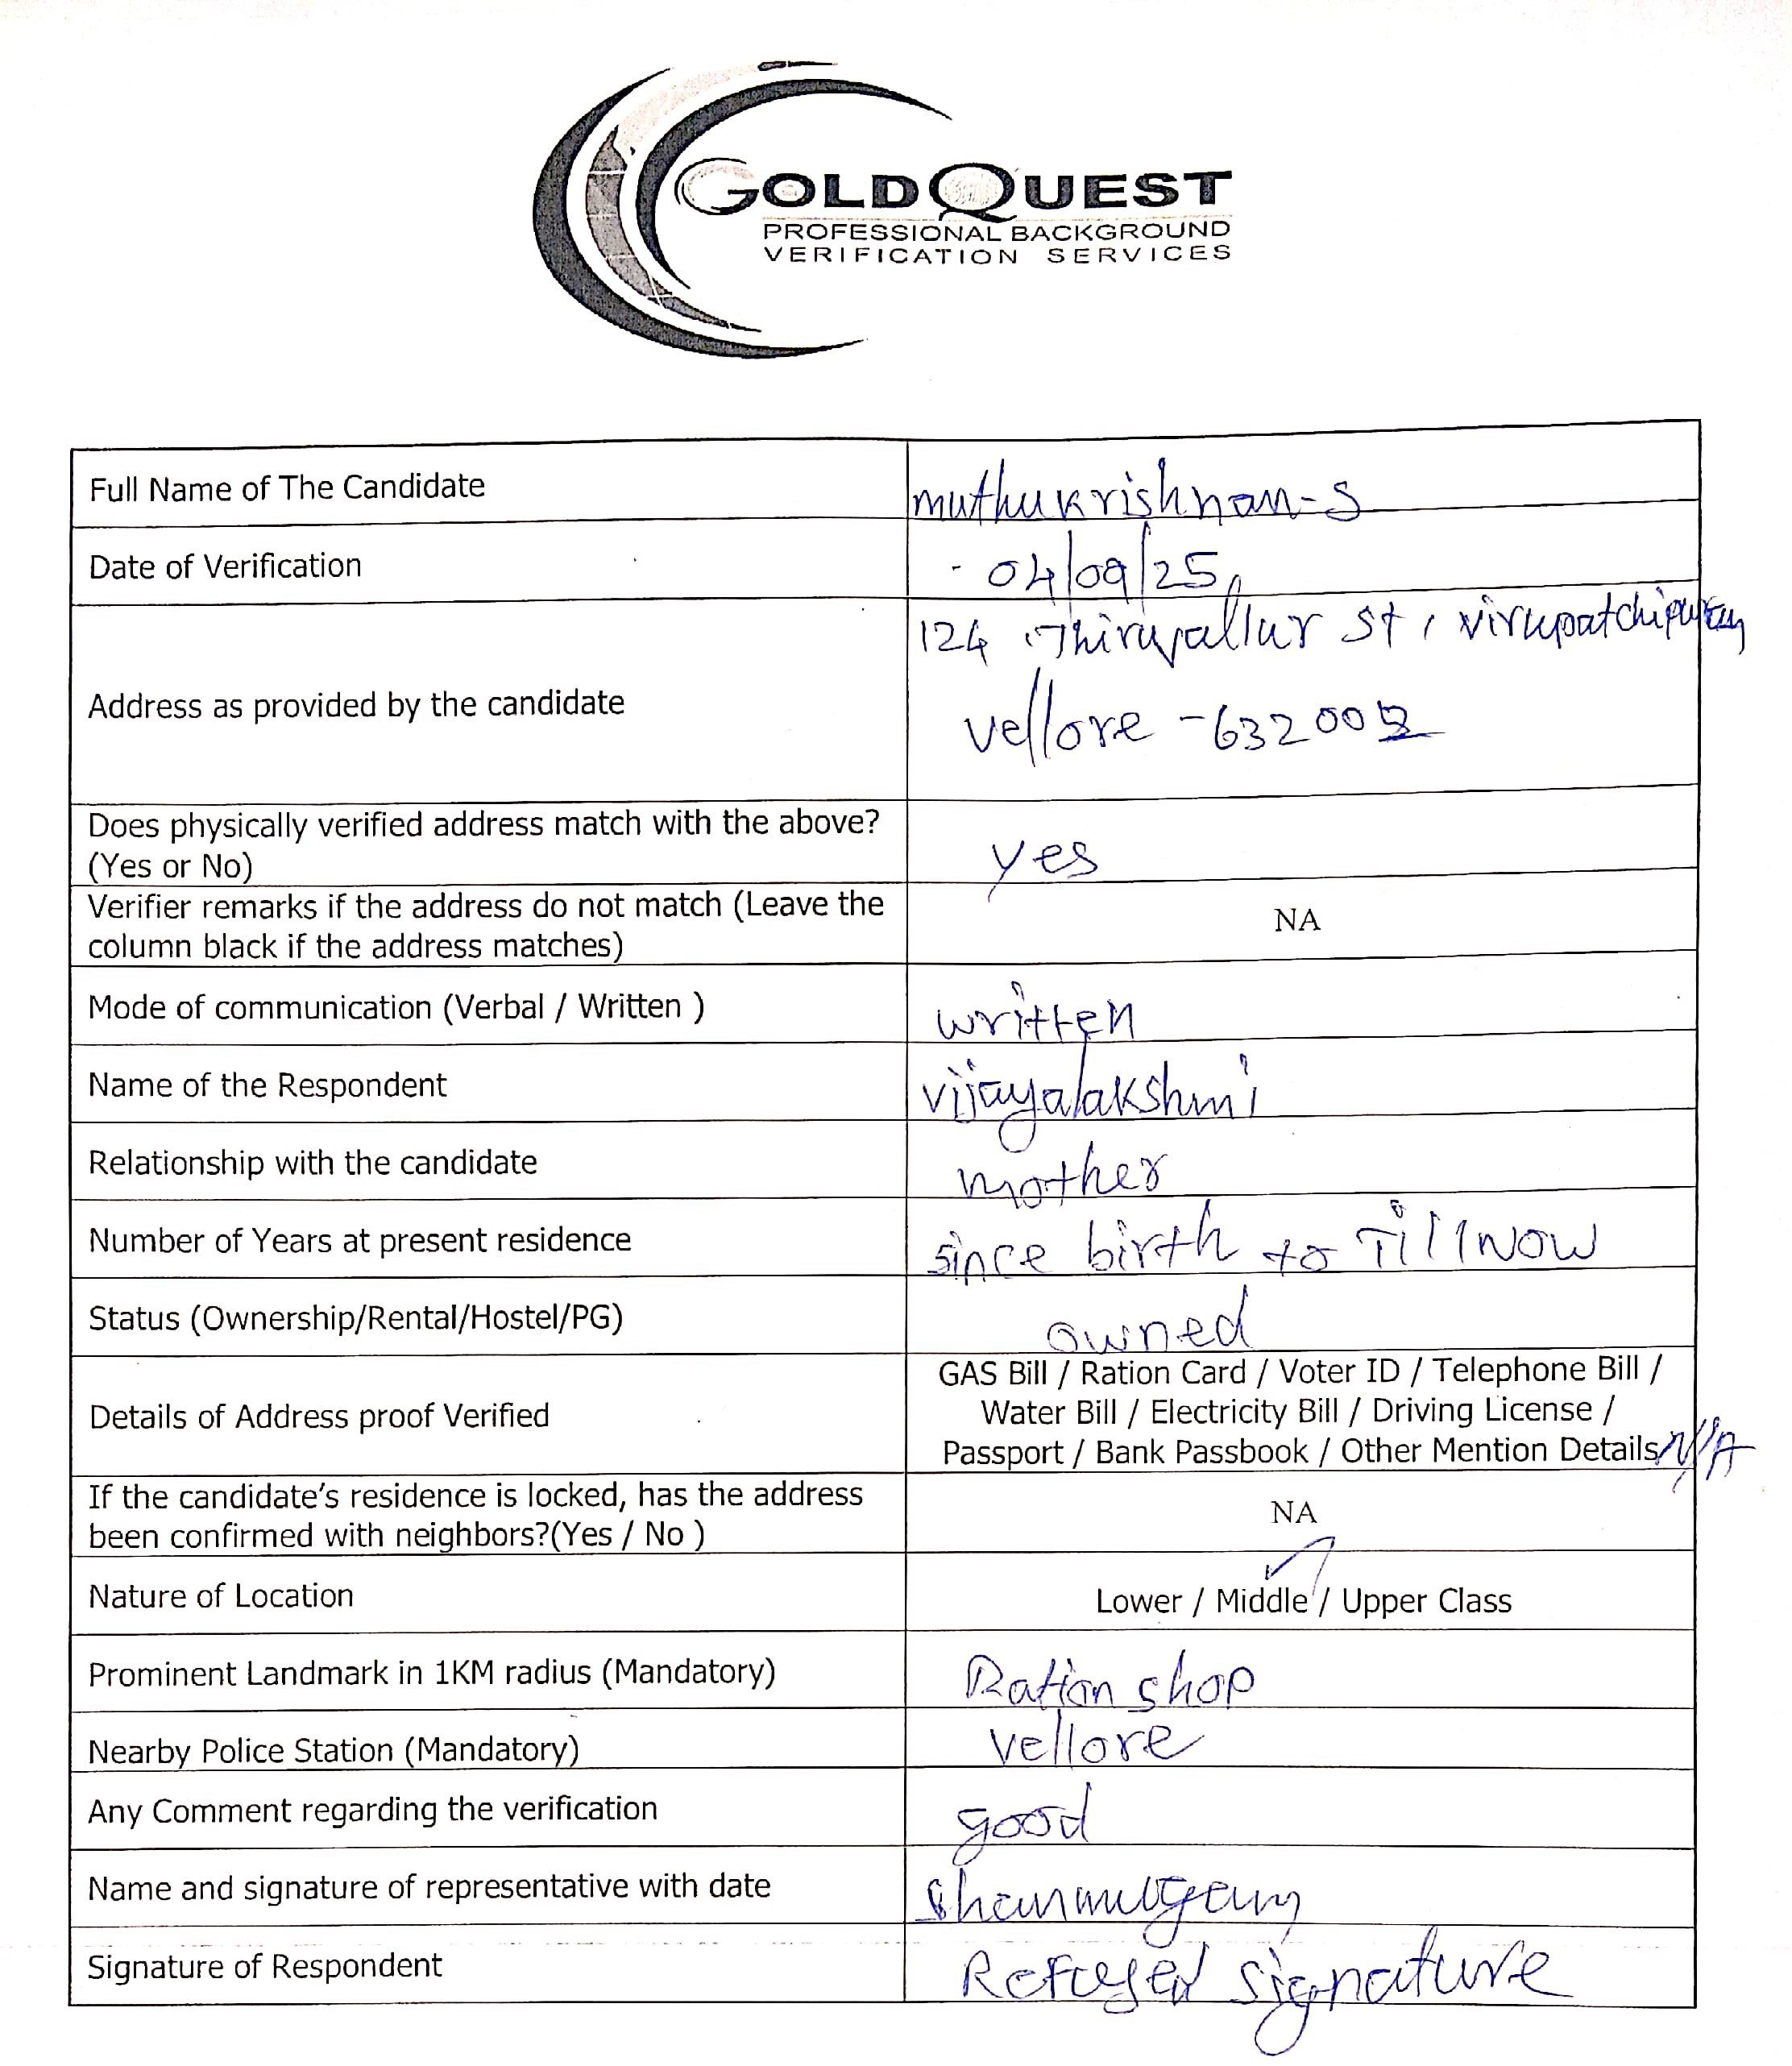 GOLDQUEST
PROFESSIONAL BACKGROUND
VERIFICATION SERVICES
Full Name of The Candidate
muthukrishnan-S
Date of Verification
04/09/25
Address as provided by the candidate
124, Thiruvallur St, virupatchipuram
vellore - 632002
Does physically verified address match with the above?
(Yes or No)
yes
Verifier remarks if the address do not match (Leave the
column black if the address matches)
NA
Mode of communication (Verbal / Written )
written
Name of the Respondent
vijayalakshmi
Relationship with the candidate
mother
Number of Years at present residence
since birth to Till Now
Status (Ownership/Rental/Hostel/PG)
owned
Details of Address proof Verified
GAS Bill / Ration Card / Voter ID / Telephone Bill /
Water Bill / Electricity Bill / Driving License /
Passport / Bank Passbook / Other Mention Details N/A
If the candidate's residence is locked, has the address
been confirmed with neighbors?(Yes / No )
NA
Nature of Location
Lower / Middle / Upper Class
Prominent Landmark in 1KM radius (Mandatory)
Ration shop
Nearby Police Station (Mandatory)
vellore
Any Comment regarding the verification
good
Name and signature of representative with date
Shanmugam
Signature of Respondent
Refused signature